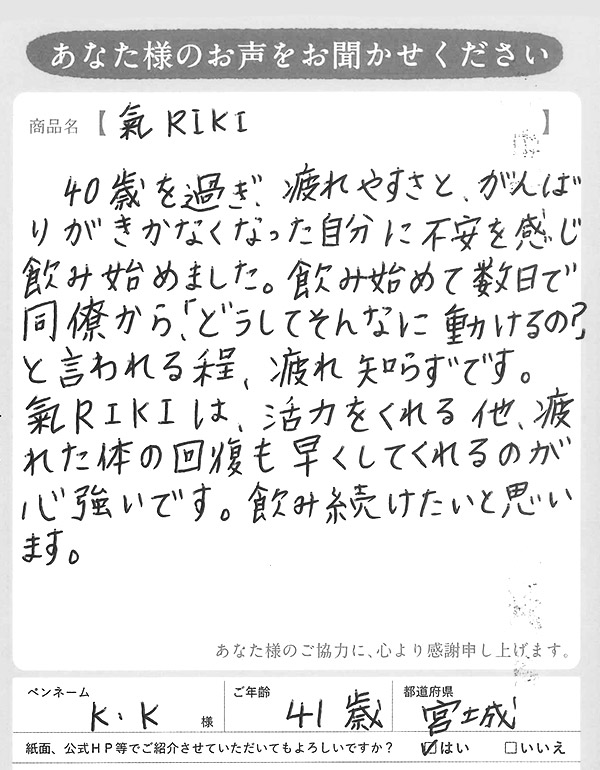 あなた様のお声をお聞かせください
商品名【氣RIKI】
40歳を過ぎ、疲れやすさと、がんば
りがきかなくなった自分に不安を感じ
飲み始めました。飲み始めて数日で
同僚から、「どうしてそんなに動けるの?」
と言われる程、疲れ知らずです。
氣RIKIは、活力をくれる他、疲
れた体の回復も早くしてくれるのが
心強いです。飲み続けたいと思い
ます。
あなた様のご協力に、心より感謝申し上げます。
ペンネーム K.K 様 ご年齢 41歳 都道府県 宮城
紙面、公式HP等でご紹介させていただいてもよろしいですか? ☑はい □いいえ